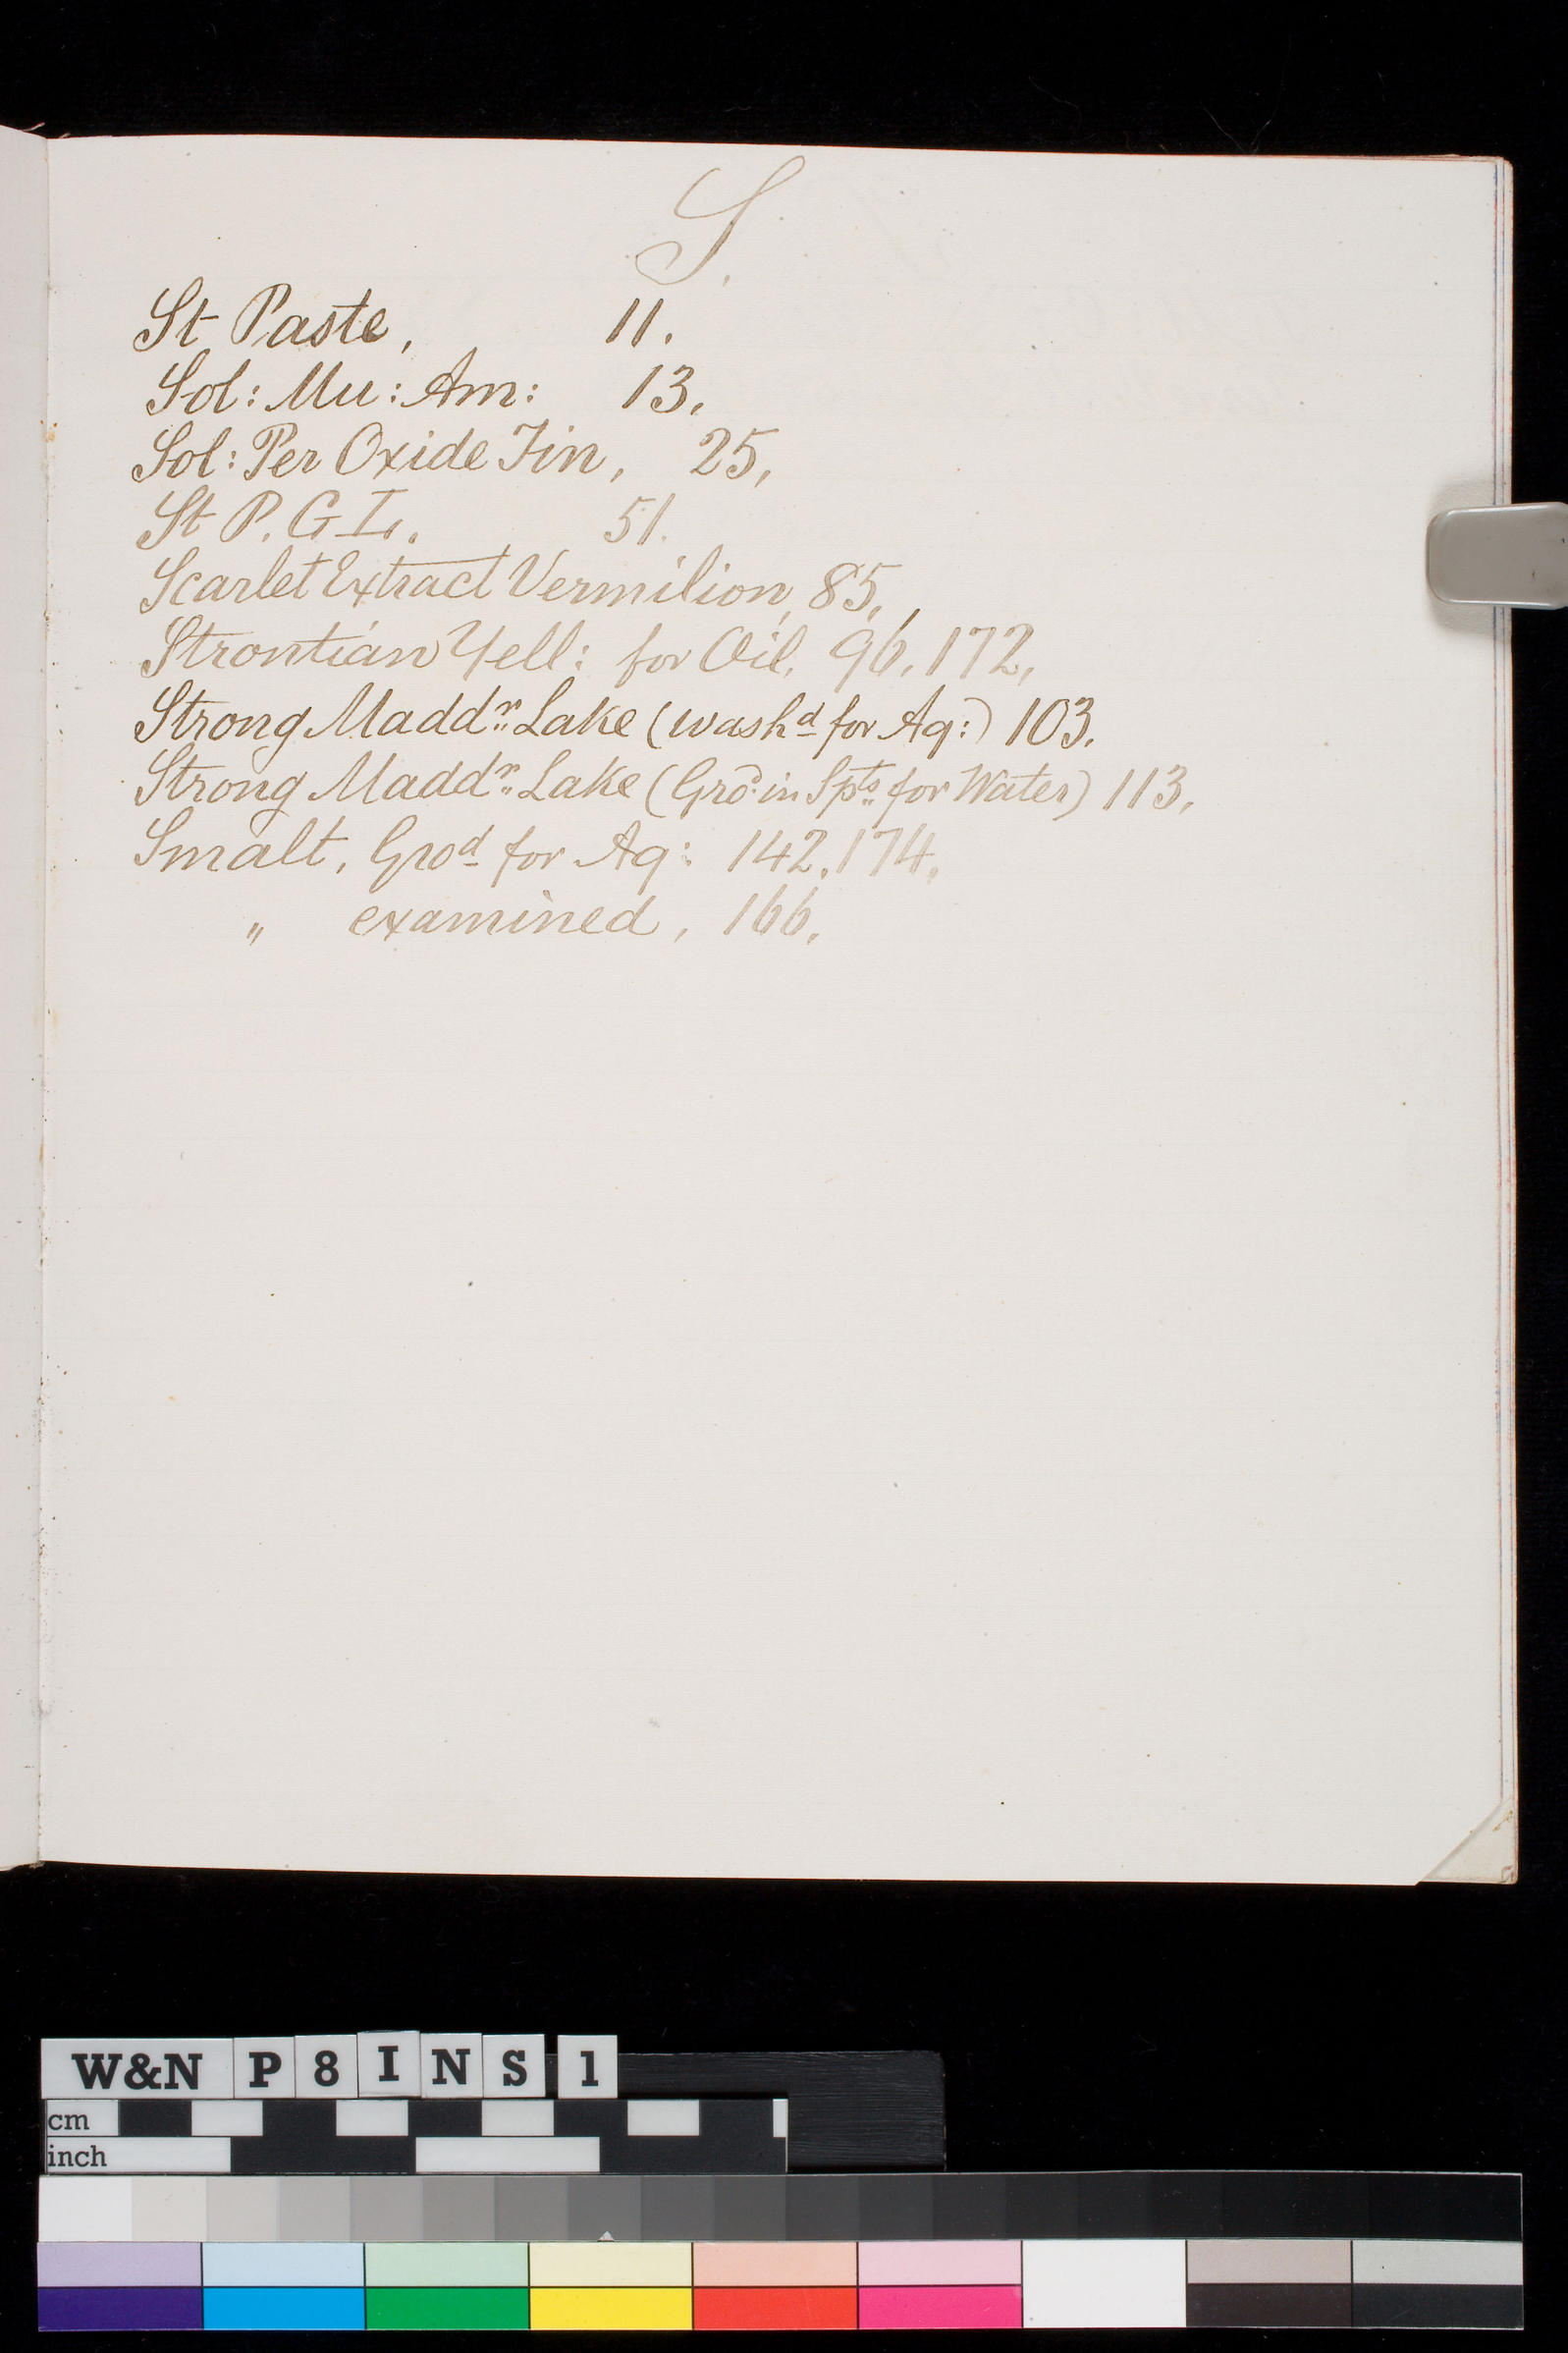 S.
St Paste, 11.
Sol: Mu: Am: 13.
Sol: Per Oxide Tin, 25,
St P. G L. 51.
Scarlet Extract Vermilion, 85,
Strontian Yell: for Oil, 96, 172,
Strong Maddr Lake (washd for Aq:) 103.
Strong Maddr Lake (Grod in Spts for Water) 113,
Smalt, Grod for Aq: 142, 174,
" examined, 166,
W&N P 8 I N S 1
cm
inch